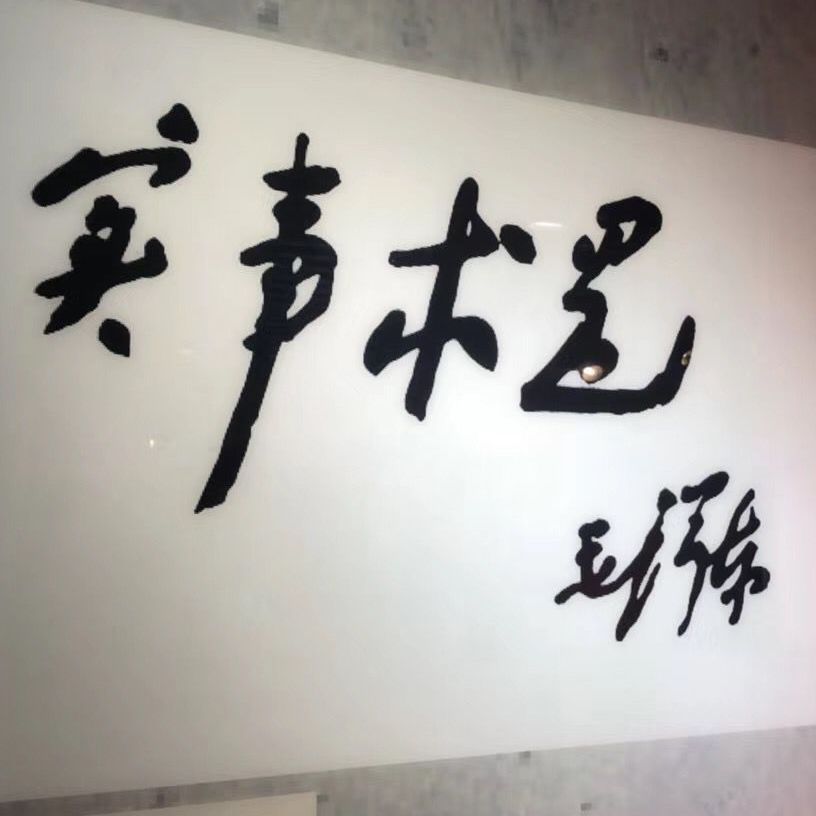 实事求是
毛泽东